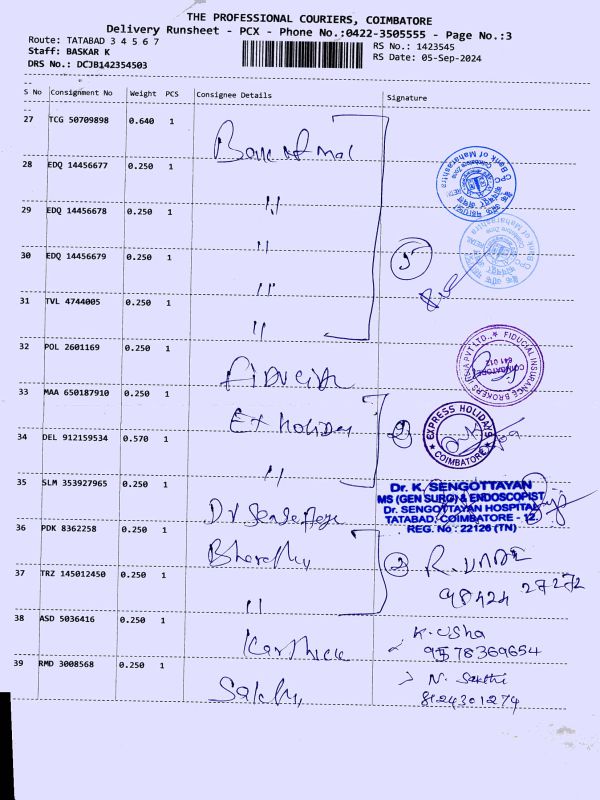 THE PROFESSIONAL COURIERS, COIMBATORE
Delivery Runsheet - PCX - Phone No.:0422-3505555 - Page No.:3
Route: TATABAD 3 4 5 6 7
Staff: BASKAR K
DRS No.: DCJB142354503
RS No.: 1423545
RS Date: 05-Sep-2024
S No Consignment No Weight PCS Consignee Details Signature
27 TCG 50709898 0.640 1
28 EDQ 14456677 0.250 1 "
29 EDQ 14456678 0.250 1 "
30 EDQ 14456679 0.250 1 "
31 TVL 4744005 0.250 1 "
Bank of Maharashtra
Coimbatore Zone
5
32 POL 2601169 0.250 1
FIDUCIAL INSURANCE BROKERS INDIA PVT LTD.,
COIMBATORE
641 012
33 MAA 650187910 0.250 1 Ex holiday
34 DEL 912159534 0.570 1 "
2
EXPRESS HOLIDAYS
COIMBATORE
35 SLM 353927965 0.250 1
Dr. K. SENGOTTAYAN
MS (GEN SURG) & ENDOSCOPIST
Dr. SENGOTTAYAN HOSPITAL
TATABAD, COIMBATORE - 12
REG. No : 22126 (TN)
36 PDK 8362258 0.250 1
37 TRZ 145012450 0.250 1 "
2
98424 27272
38 ASD 5036416 0.250 1 Karthick K. Usha
9578369654
39 RMD 3008568 0.250 1 Sakthi N. Sakthi
8124301274